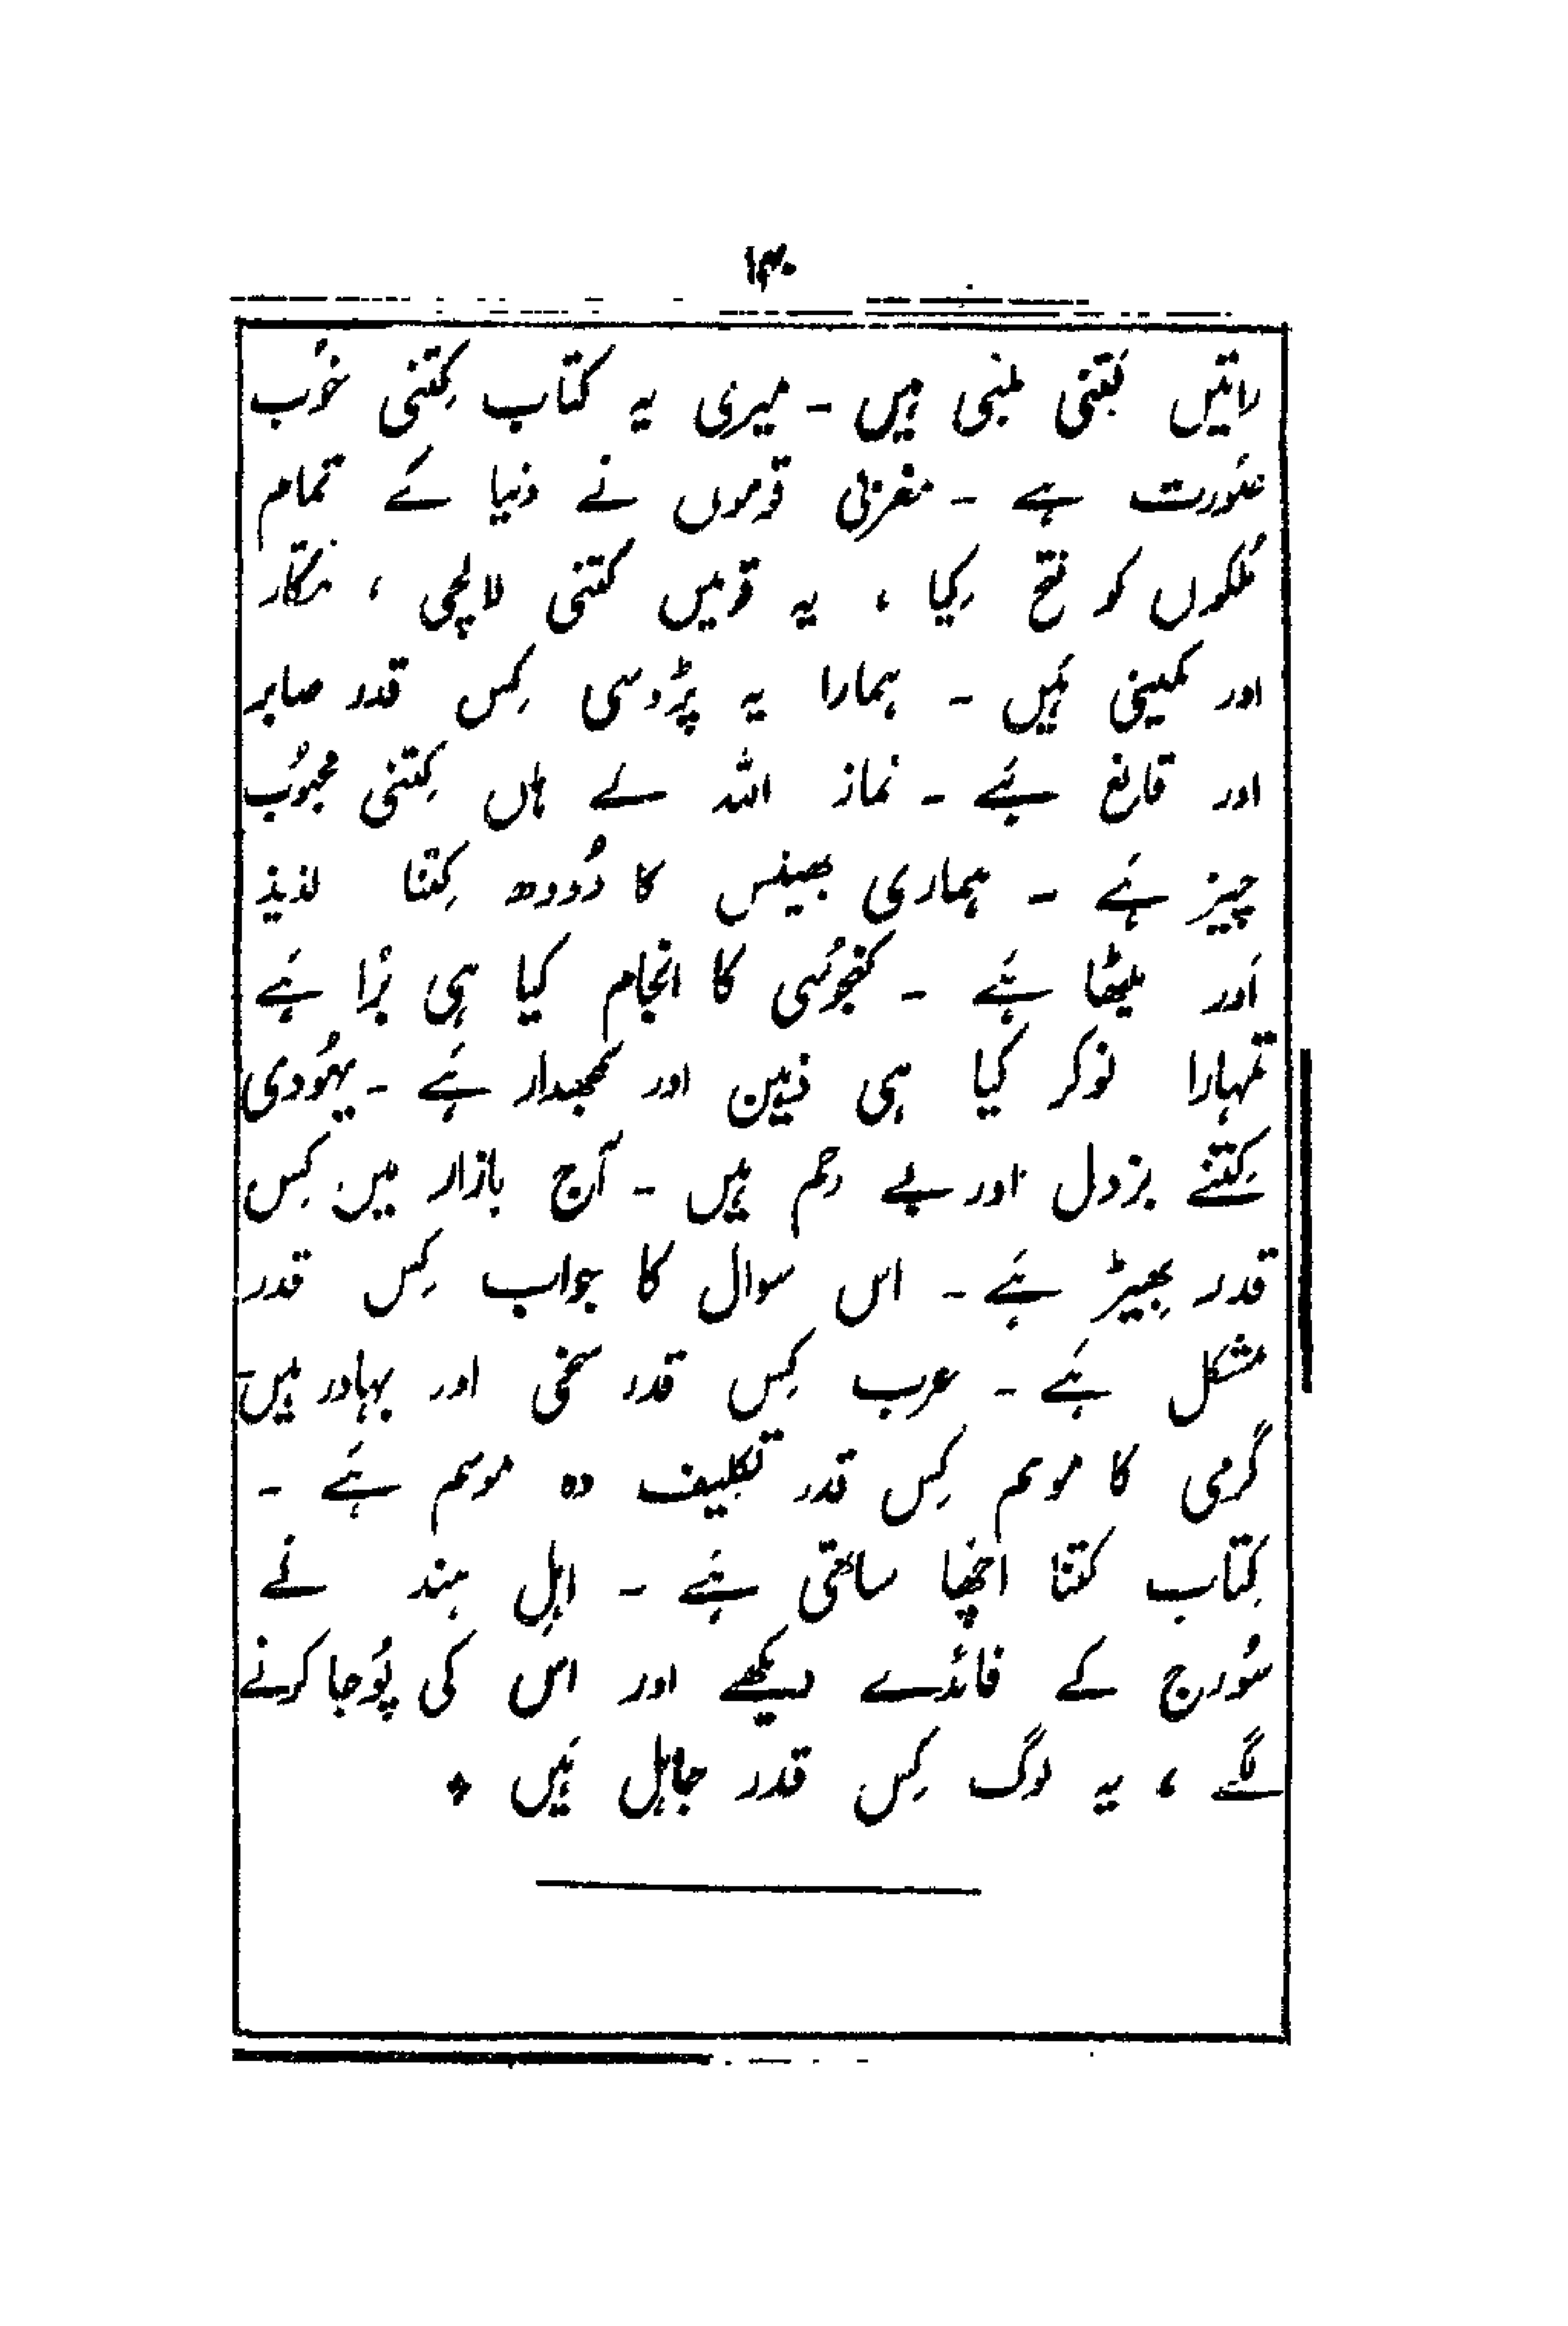 ۱۴۰
راتیں کتنی لمبی ہیں ۔ میری یہ کتاب کِتنی خوُب
صوُرت ہے ۔ مغربی قوموں نے دنیا کے تمام
مُلکوں کو فتح کِیا ، یہ قومیں کتنی لالچی ، مکّار
اور کمینی ہَیں ۔ ہمارا یہ پڑوسی کِس قدر صابر
اور قانع ہَے ۔ نماز اللہ کے ہاں کِتنی محبوُب
چیز ہَے ۔ ہماری بھینس کا دُودھ کِتنا لذیذ
اَور میٹھا ہَے ۔ کنجوُسی کا انجام کیا ہی بُرا ہَے
تمہارا نوکر کیا ہی ذہین اور سمجھدار ہَے ۔ یہوُدی
کِتنے بزدل اور بے رحم ہیں ۔ آج بازار میں کِس
قدر بھِیڑ ہَے ۔ اس سوال کا جواب کِس قدر
مشکل ہَے ۔ عرب کِس قدر سخی اور بہادر ہیں ۔
گرمی کا موسم کِس قدر تکلیف دہ موسم ہَے ۔
کِتاب کتنا اچّھا ساتھی ہَے ۔ اہلِ ہند نے
سوُرج کے فائدے دیکھے اور اس کی پوُجا کرنے
لگے ، یہ لوگ کِس قدر جاہل ہَیں ٭